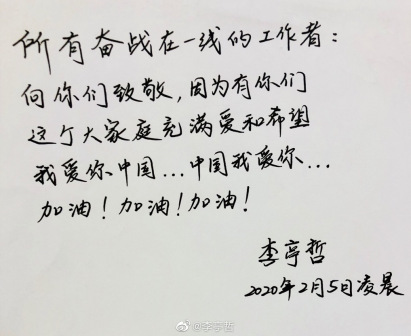 所有奋战在一线的工作者:
向你们致敬,因为有你们
这个大家庭充满爱和希望
我爱你中国...中国我爱你...
加油!加油!加油!
李亭哲
2020年2月5日凌晨
@李亭哲